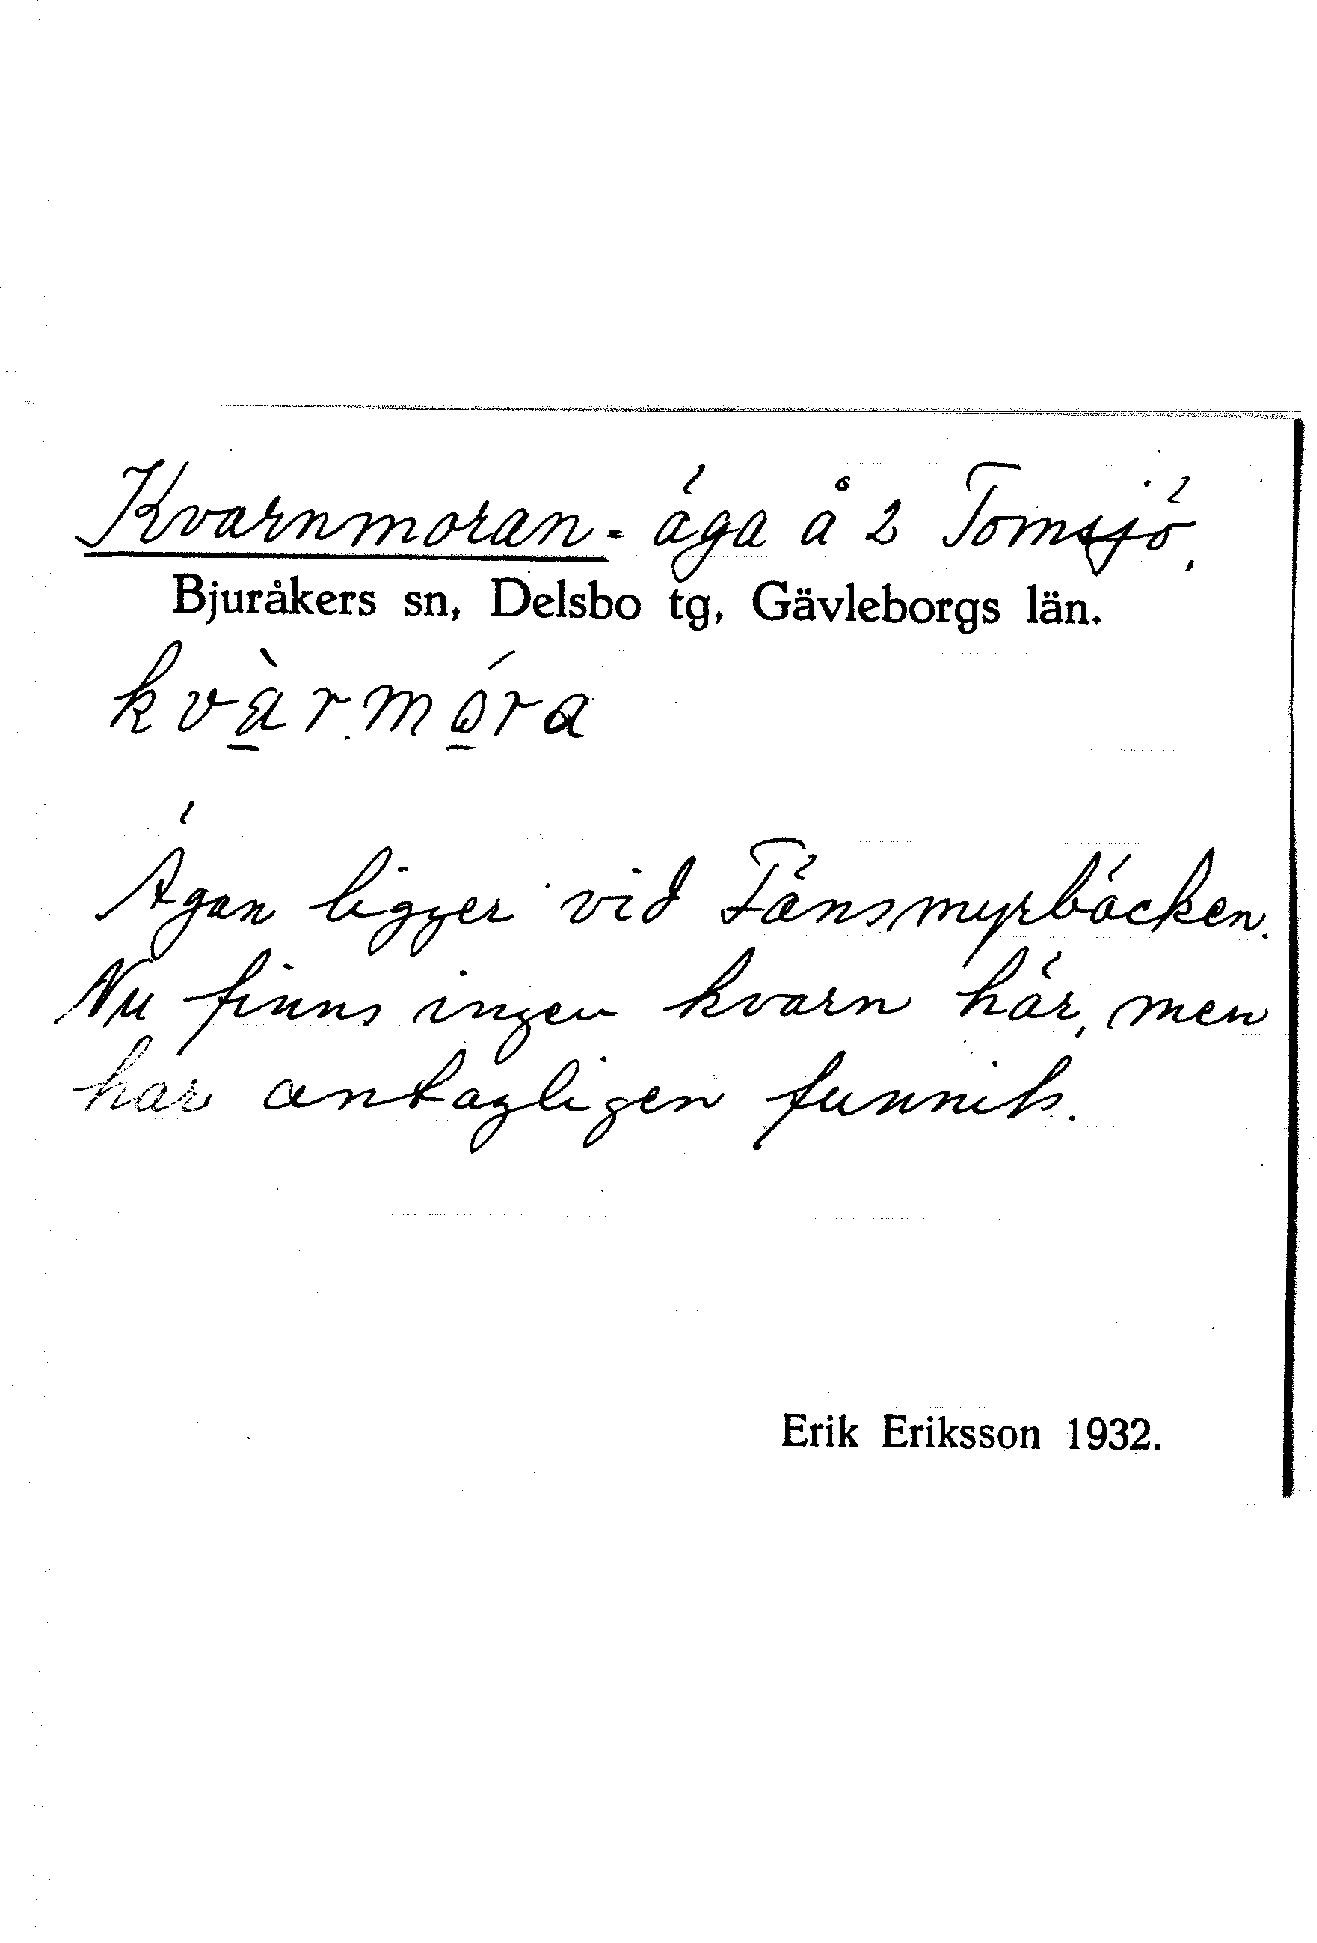 Kvarnmoran - äga å 2 Tomsjö,
Bjuråkers sn, Delsbo tg, Gävleborgs län.
kvàrmóra
Ägan ligger vid Fänsmyrbäcken.
Nu finns ingen kvarn här, men
har antagligen funnits.
Erik Eriksson 1932.